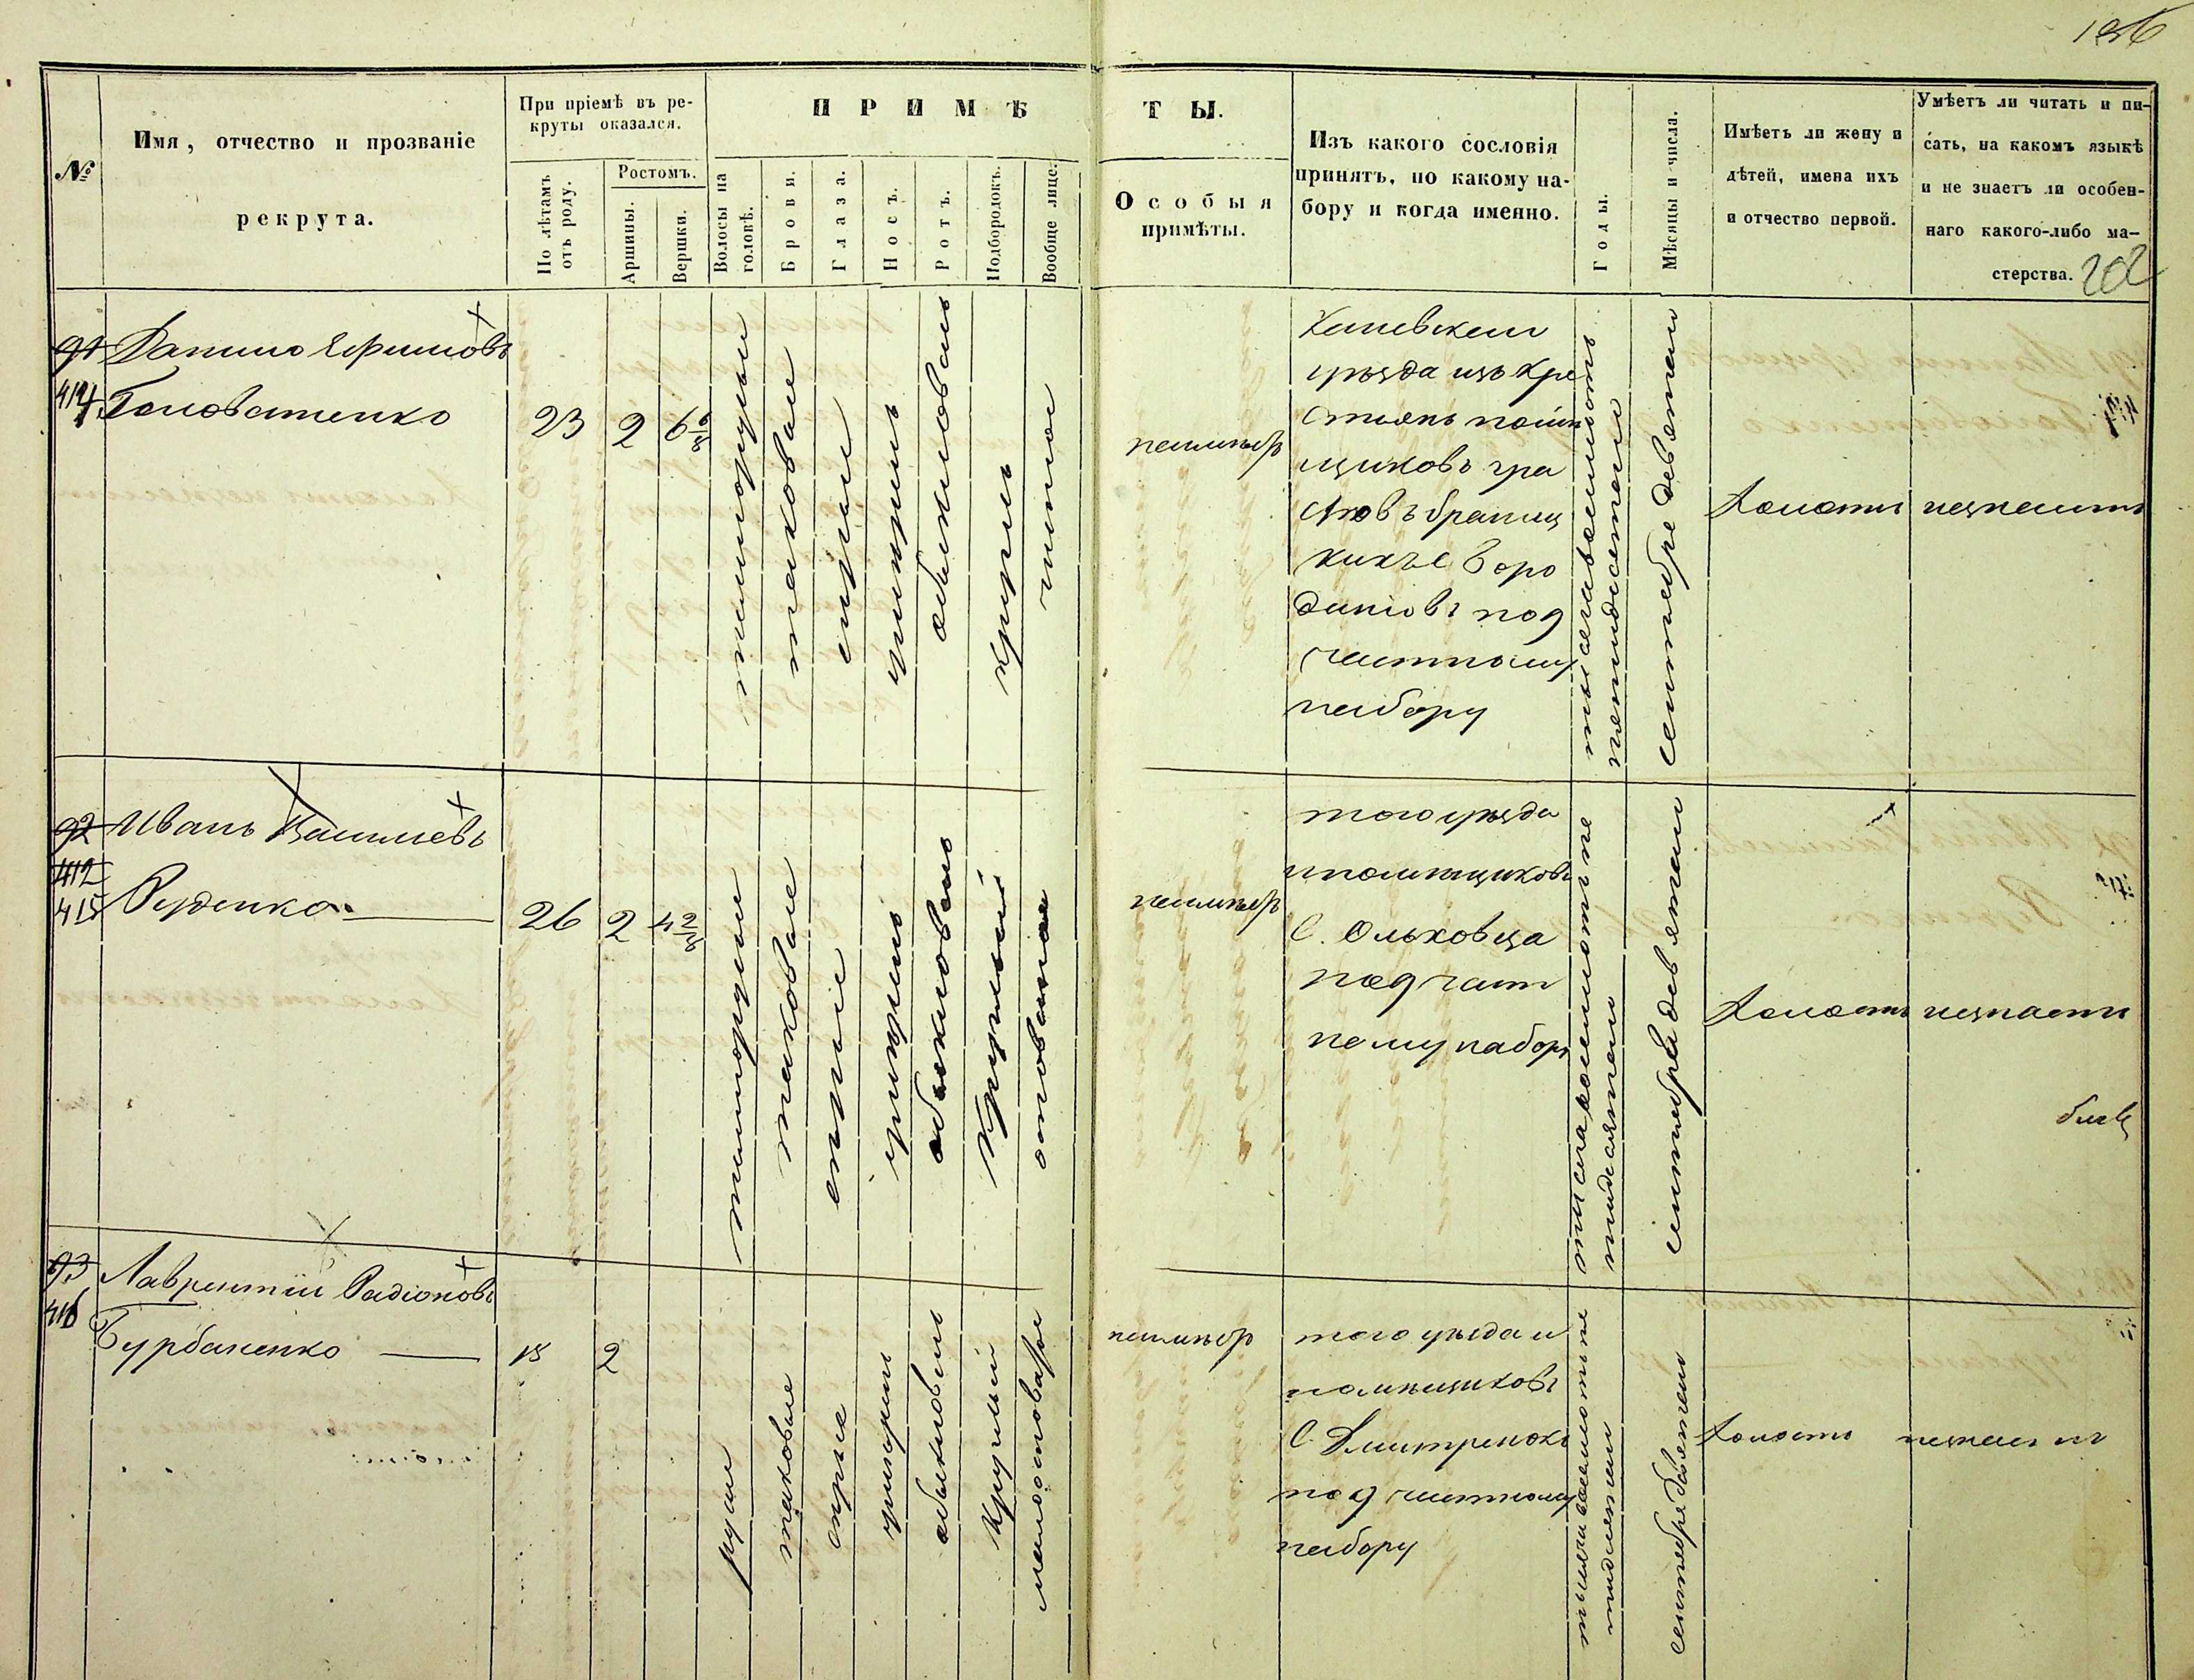 202
№
Имя, отчество и прозваніе
рекрута.
При пріемѣ въ ре-
круты оказался.
По лѣтамъ
отъ роду.
Ростомъ.
Аршины.
Вершки.
ПРИМѢ
ТЫ.
Волосы на
головѣ.
Брови.
Глаза.
Носъ.
Ротъ.
Подбородокъ.
Вообще лице.
Особыя
примѣты.
Изъ какого сословія
принятъ, по какому на-
бору и когда именно.
Годы.
Мѣсяцы и числа.
Имѣетъ ли жену и
дѣтей, имена ихъ
и отчество первой.
Умѣетъ ли читать и пи-
сать, на какомъ языкѣ
и не знаетъ ли особен-
наго какого-либо ма-
стерства.
91
414
Данило Ефимовъ
Головатенко
23
2
6 6/8
темнорусые
таковые
сѣрые
умѣренъ
обыкновенъ
круглъ
чистое
неимѣетъ
Каневскаго
уѣзда изъ кре
стьянъ помѣ
щиковъ гра
фовъ браниц
кихъ с Боро
даніовъ под
частному
набору
тысяча восемсотъ
пятидесятаго
сентября девятаго
Холостъ
незнаетъ
92
412
415
Иванъ Васильевъ
Руденко
26
2
4 2/8
темнорусые
таковые
сѣрые
умѣренъ
обыкновенъ
круглый
неимѣетъ
того уѣзда
и помѣщиковъ
С. Ольховца
под част
ному набору
сентября девятаго
Холостъ
незнаетъ
93
416
Лаврентій Радіоновъ
Бурбаненко
2
русые
таковые
сѣрые
умѣренъ
обыкновенъ
круглый
малоостоватое
неимѣетъ
того уѣзда и
помѣщиковъ
С. Дмитренокъ
под частному
набору
сентября девятаго
Холостъ
незнаетъ